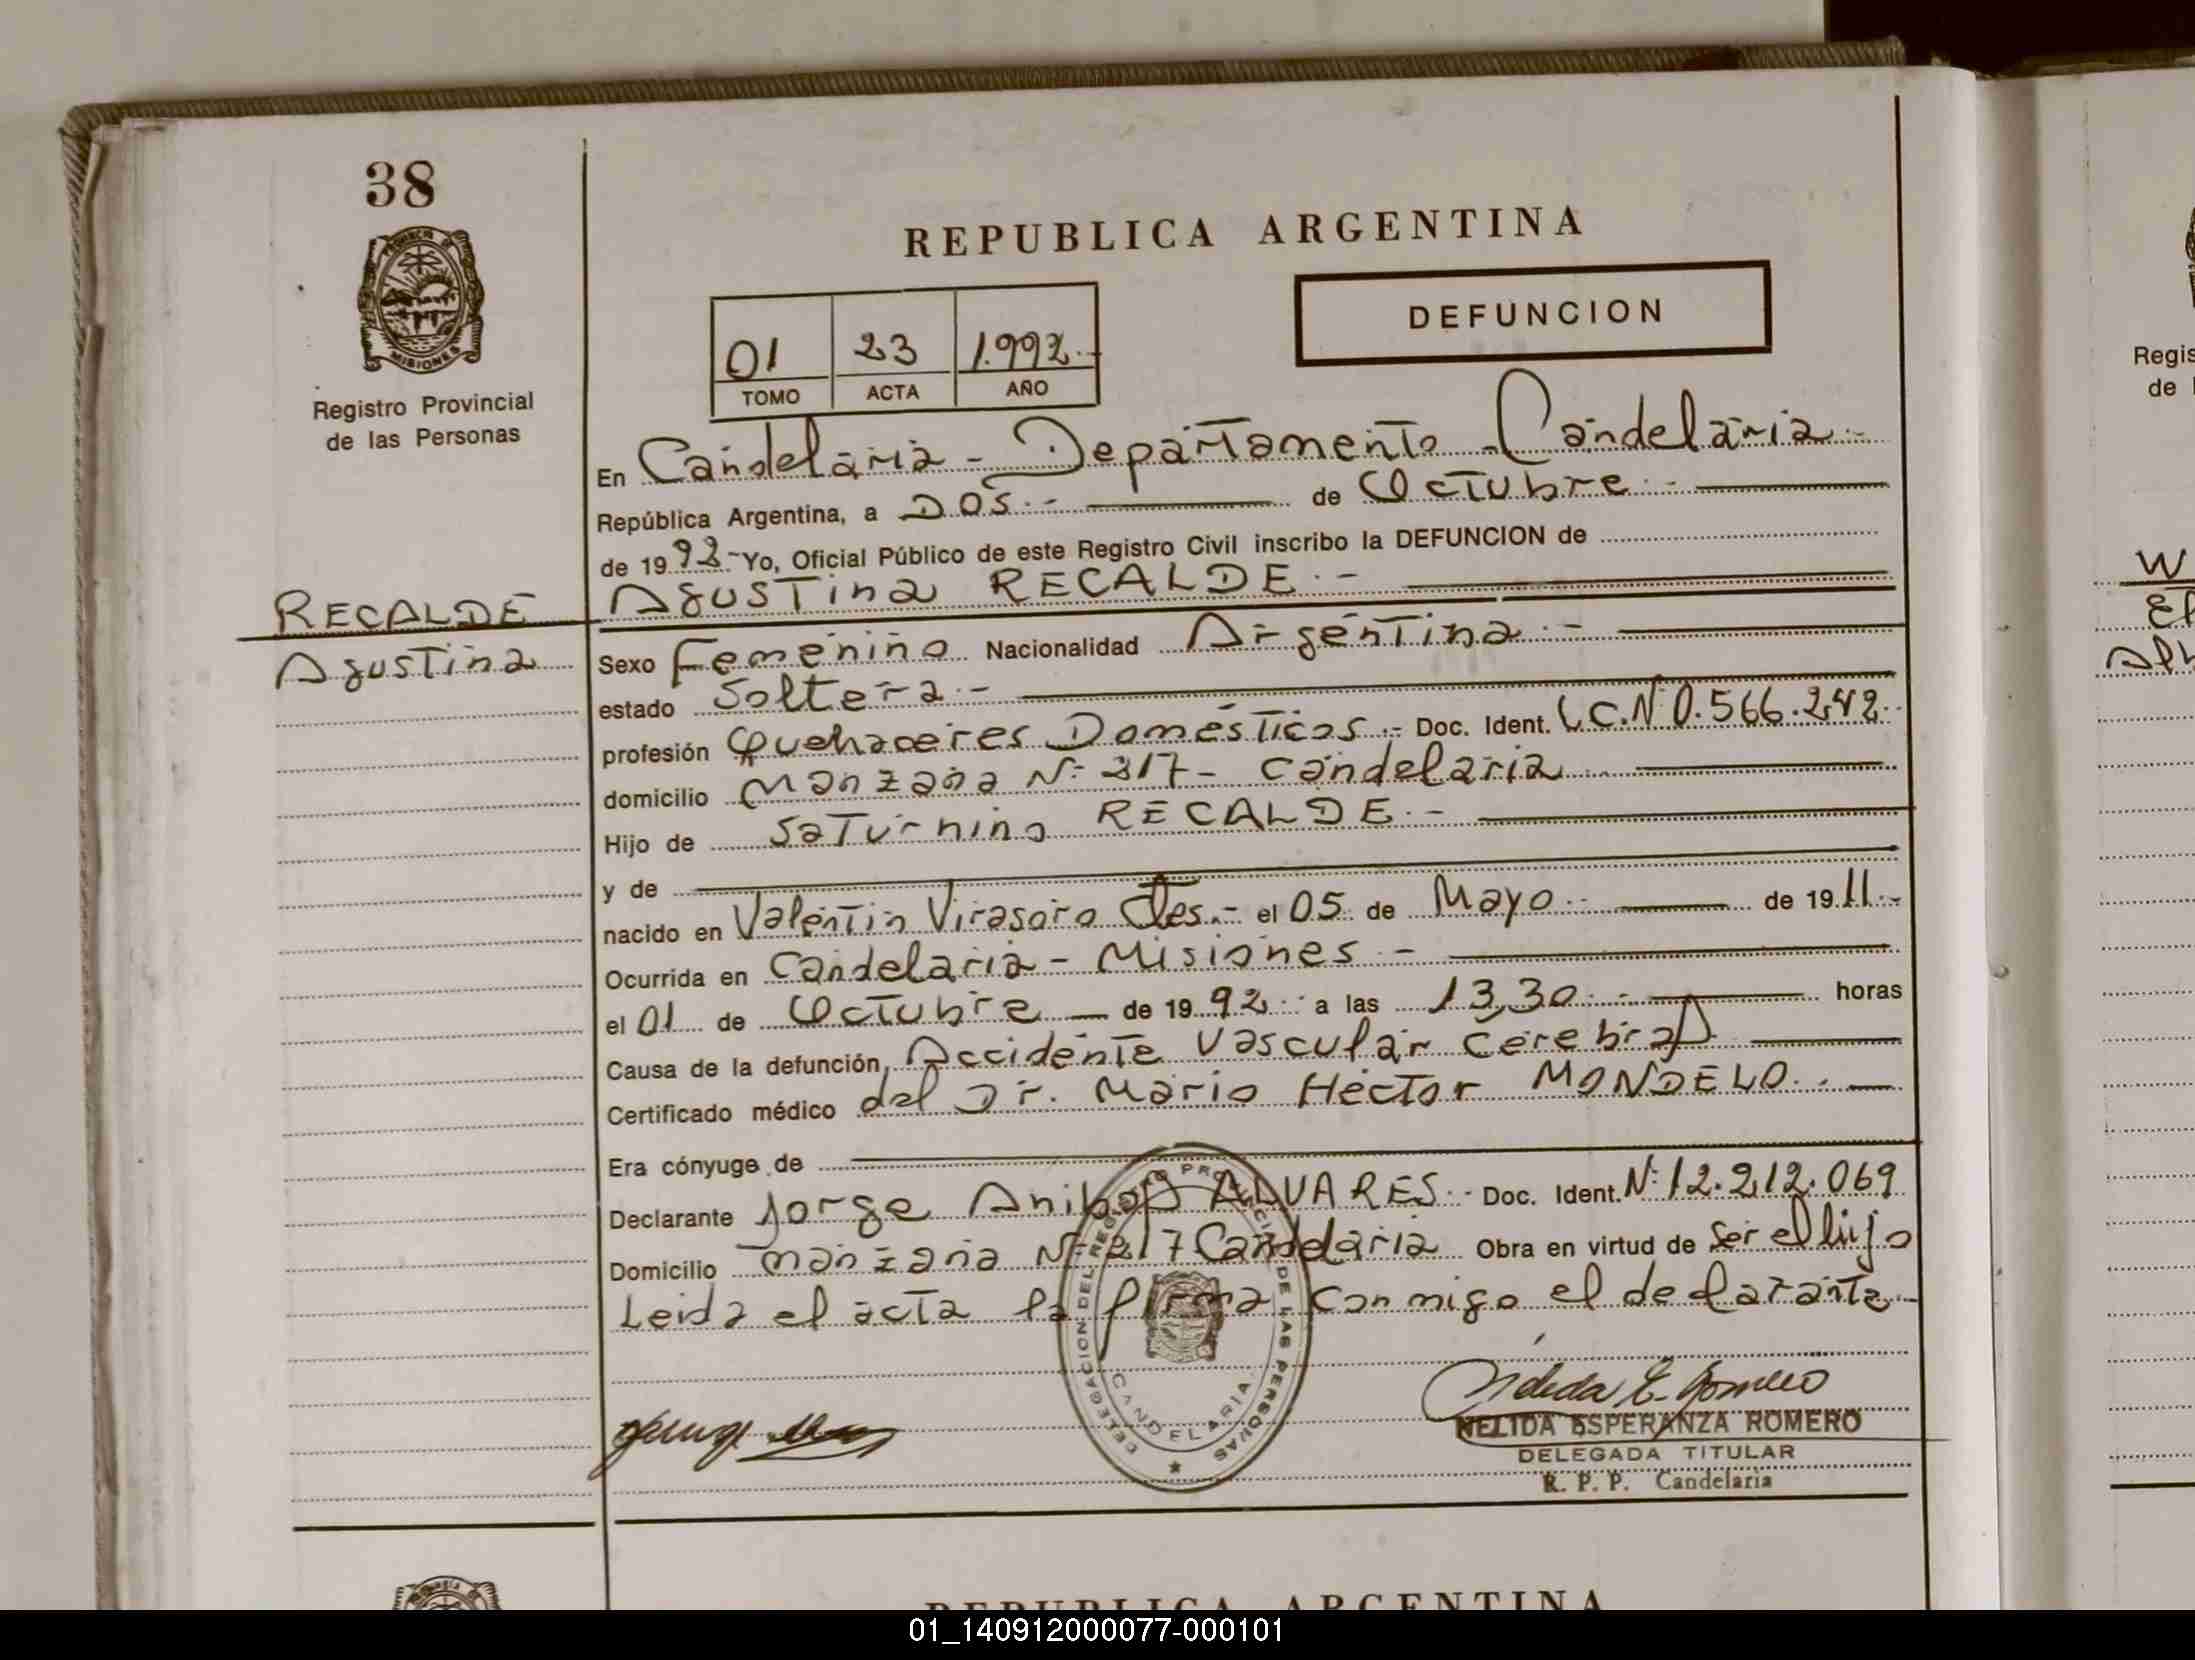 38
PROVINCIA DE
MISIONES
Registro Provincial
de las Personas
RECALDE
Agustina
REPUBLICA ARGENTINA
DEFUNCION
01 23 1.992.-
TOMO ACTA AÑO
En Candelaria - Departamento - Candelaria.-
República Argentina, a DOS.- de Octubre.-
de 19 92- Yo, Oficial Público de este Registro Civil inscribo la DEFUNCION de
Agustina RECALDE.-
Sexo Femenino Nacionalidad Argentina.-
estado Soltera.-
profesión Quehaceres Domésticos.- Doc. Ident. L.C.Nº 0.566.242.-
domicilio Manzana Nº 217- Candelaria.-
Hijo de Saturnino RECALDE.-
y de
nacido en Valentin Virasoro Ctes.- el 05 de Mayo.- de 19 11.-
Ocurrida en Candelaria - Misiones.-
el 01 de Octubre de 19 92 a las 13,30.- horas
Causa de la defunción Accidente Vascular Cerebral
Certificado médico del Dr. Mario Héctor MONDELO.-
Era cónyuge de
Declarante Jorge Anibal ALVARES.- Doc. Ident. Nº 12.212.069
Domicilio manzana Nº 217 Candelaria Obra en virtud de ser el hijo
Leida el acta la firma conmigo el declarante.-
DELEGACION DEL REGISTRO PROVINCIAL DE LAS PERSONAS
CANDELARIA
Nelida E. Romero
NELIDA ESPERANZA ROMERO
DELEGADA TITULAR
R. P. P. Candelaria
REPUBLICA ARGENTINA
Regis
de
W
El
01_140912000077-000101